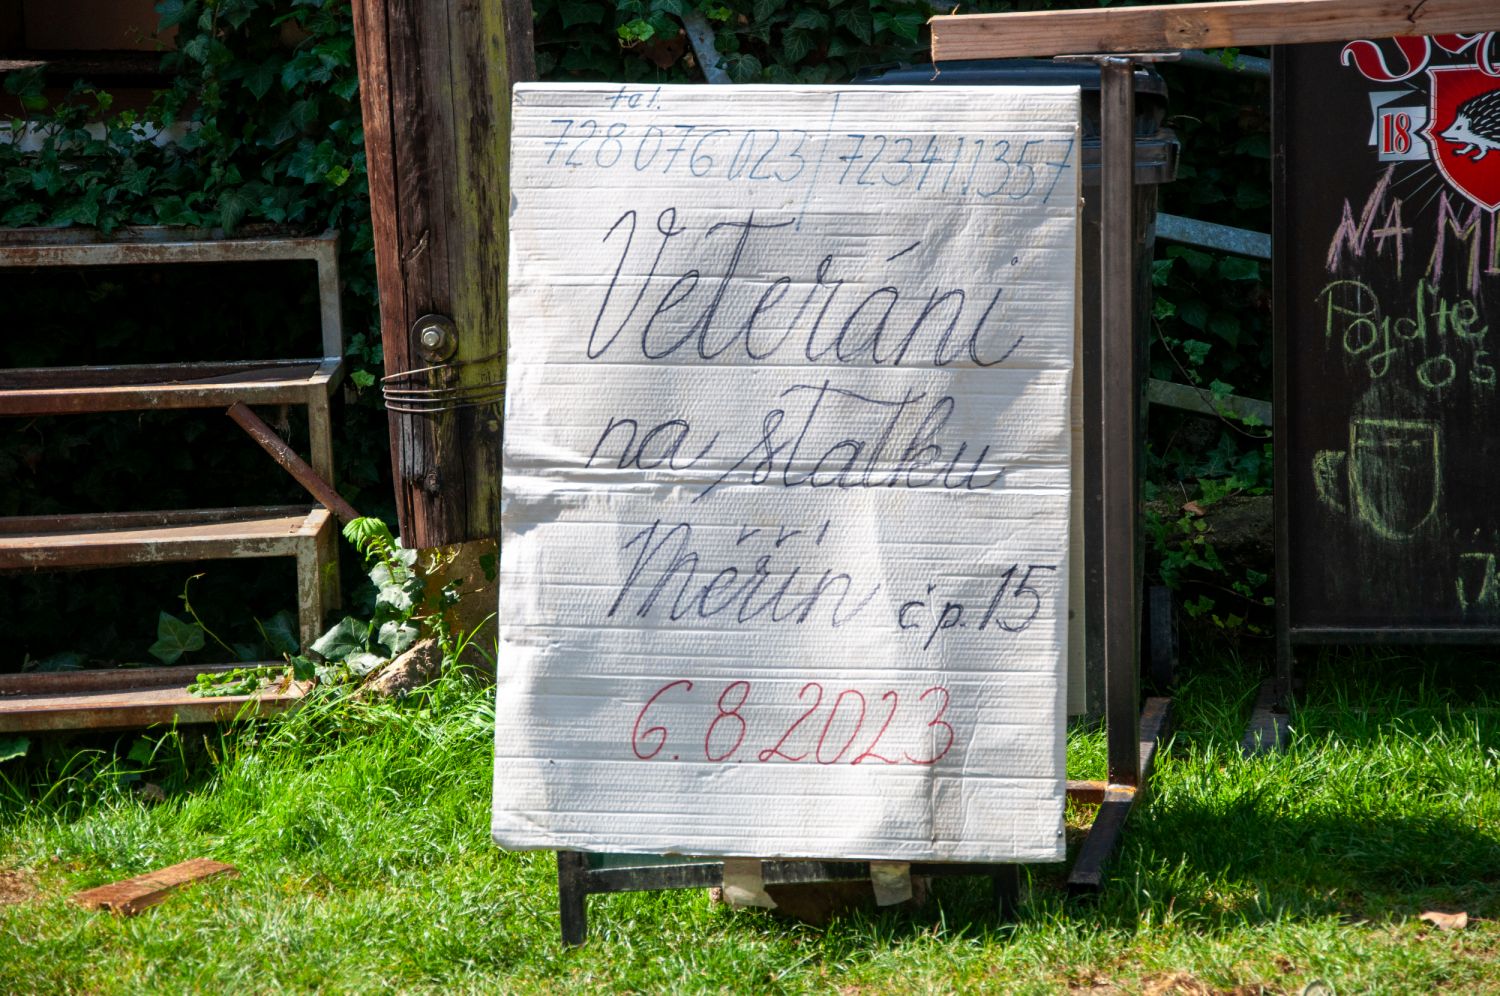 tel.
728 076 023 | 723411357
Veteráni
na statku
Měřín čp. 15
6.8.2023
18
NA
Pojďte